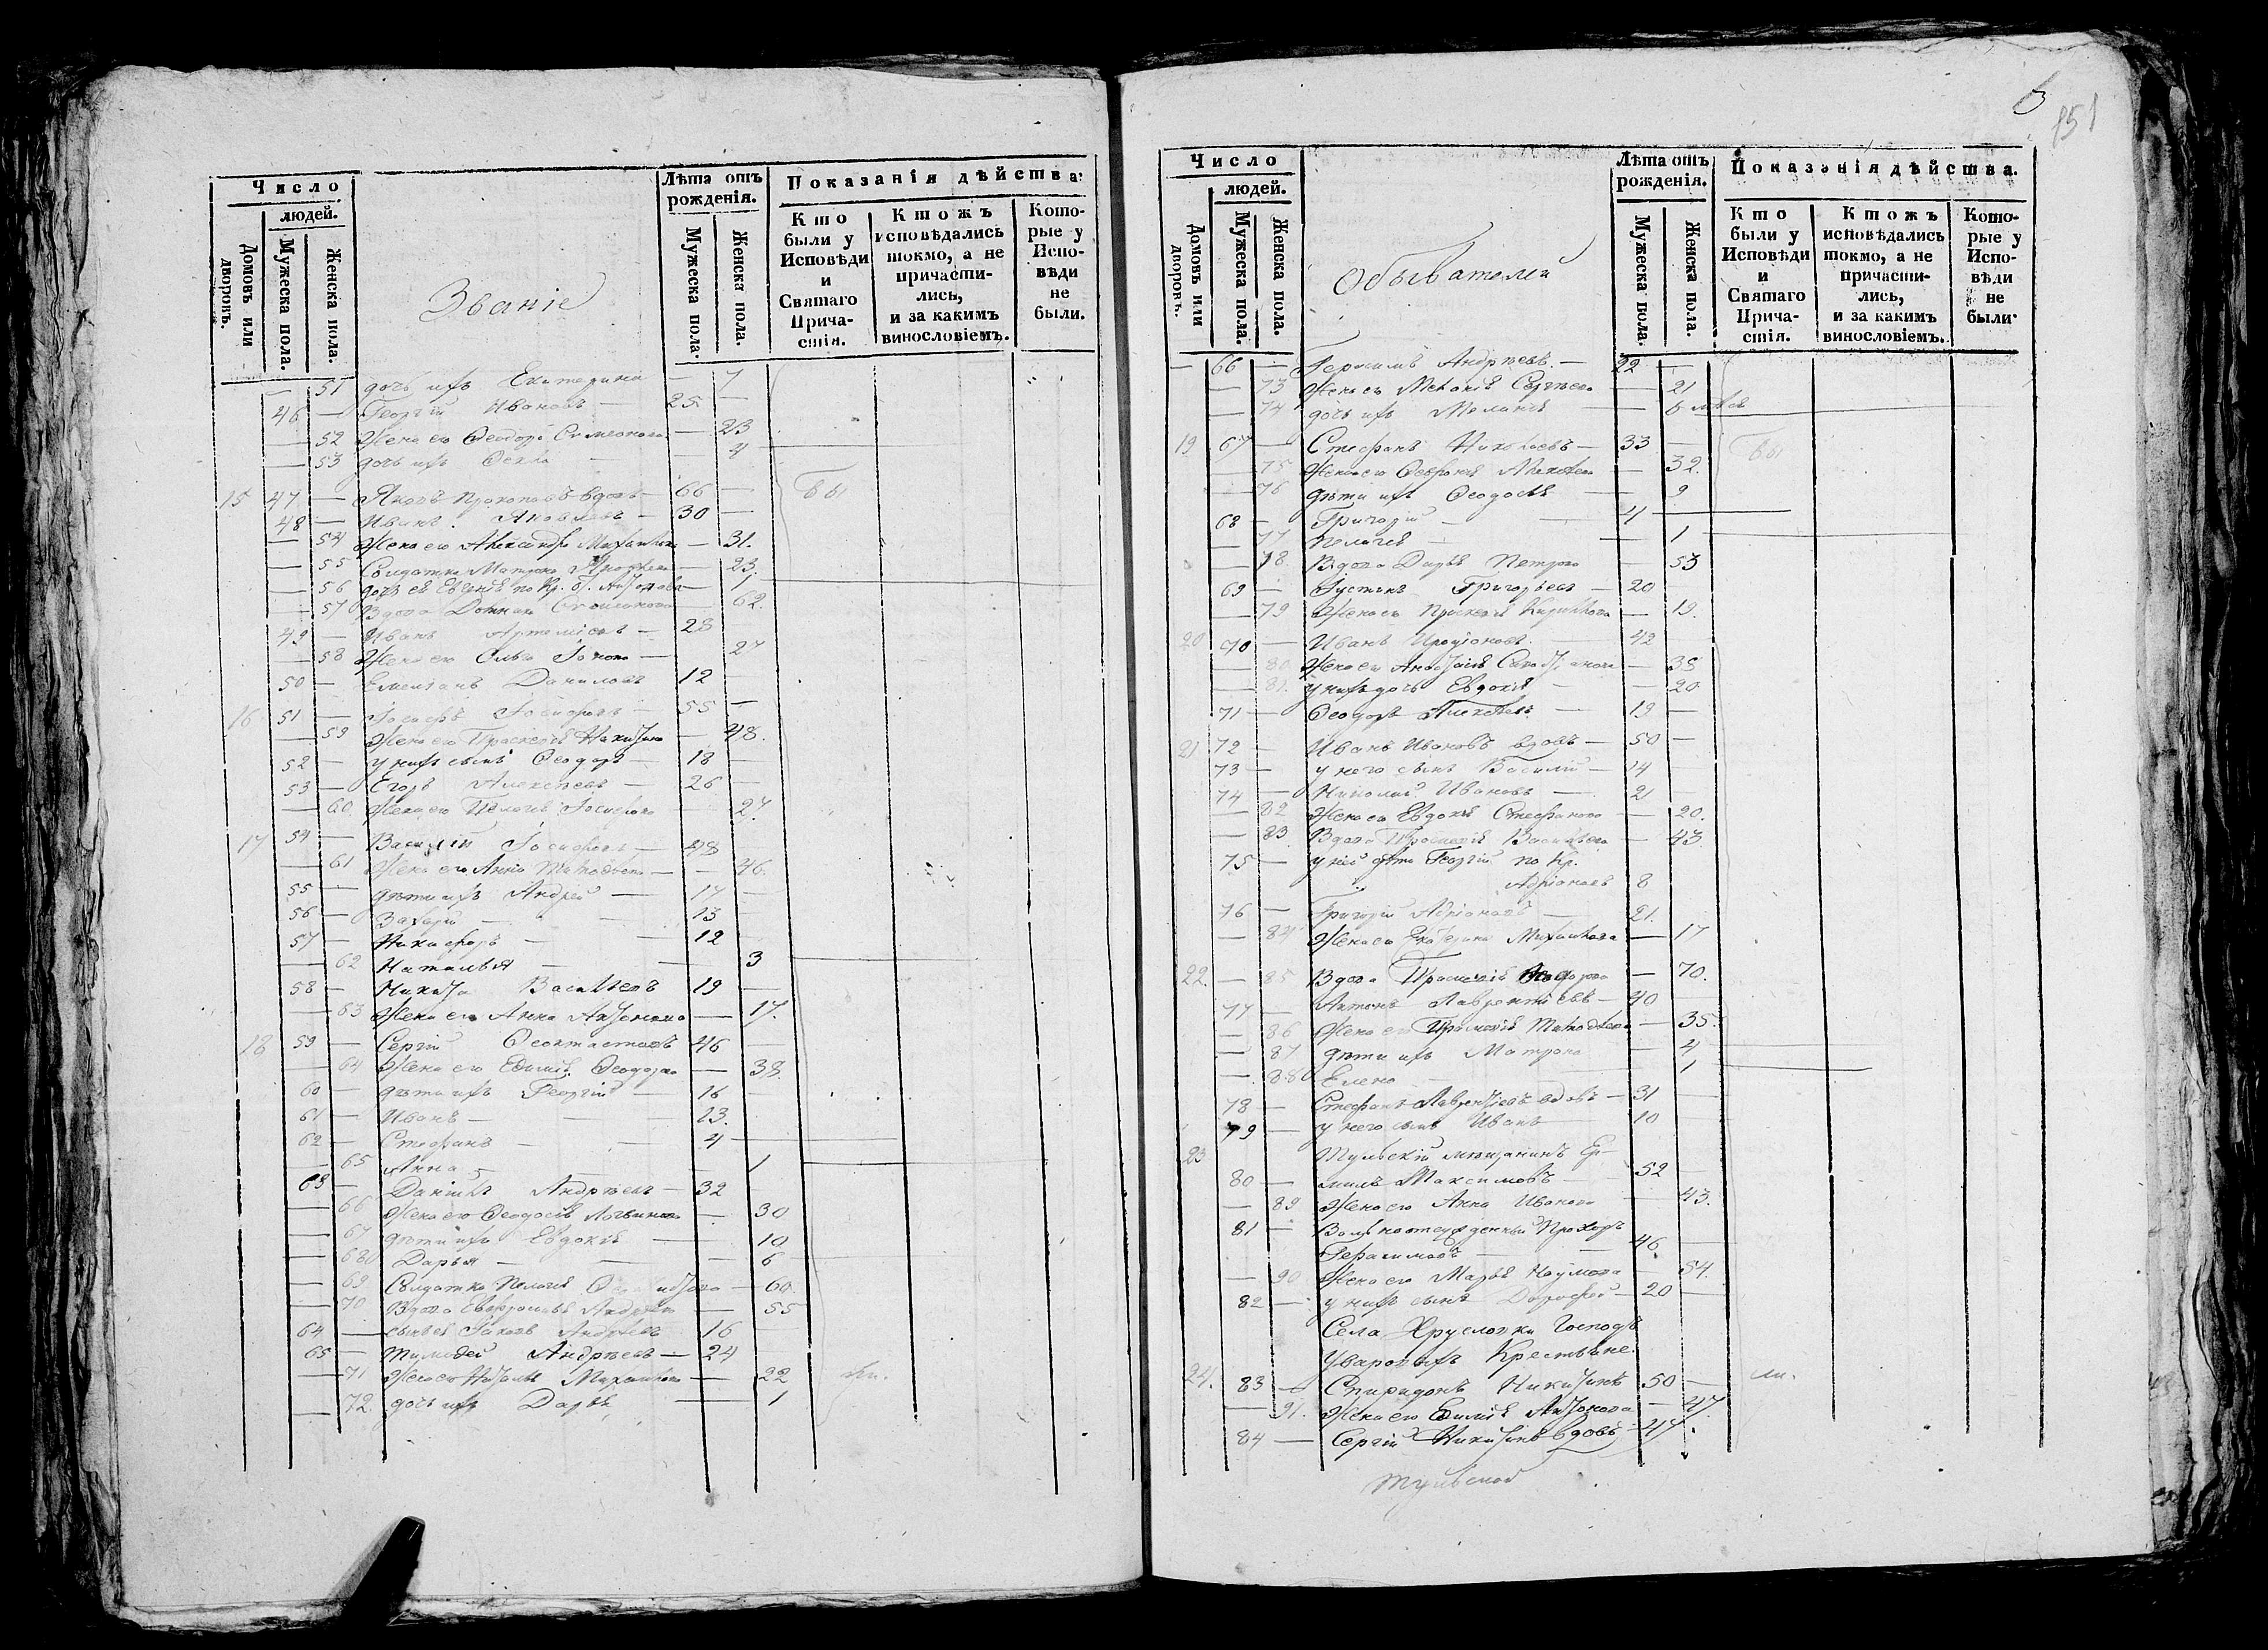 Число
людей.
Домовъ или дворовъ.
Мужеска пола.
Женска пола.
Званіе
Лѣта отъ рожденія.
Мужеска пола.
Женска пола.
Показанія дѣйства.
Кто были у Исповѣди и Святаго Прича-стія.
Ктожъ исповѣдались токмо, а не причасти-лись, и за какимъ винословіемъ.
Кото-рые у Испо-вѣди не были.
51 дочь ихъ Екатерина — 7
46 — Георгій Ивановъ — 25 —
52 Жена его Ѳеодора Симеонова — 23
53 дочь ихъ Ѳекла — 4
15 47 — Яковъ Прокопьевъ вдовъ — 66 — бы
48 — Иванъ Яковлевъ — 30 —
54 Жена его Александра Михайлова — 31.
55 Солдатка Матрона — 23.
56 дочь ея по Кр. О. — 1
57 Вдова Домна — 62.
49 — Иванъ Артеміевъ — 28
58 Жена его Ольга — 27
50 — Емеліанъ Даниловъ 12 —
16 51 — Іосифъ Іосифовъ — 55 —
59 Жена его Праскевія Никитина — 48.
52 — у нихъ сынъ Ѳеодоръ — 18 —
53 — Егоръ Алексѣевъ — 26 —
60 Жена его Пелагія Іосифова — 27.
17 54 — Василій Іосифовъ — 48
61 Жена его Анна Матвѣева — 46.
55 — дѣти ихъ Андрей — 17 —
56 — Захарій — 13
57 — Никифоръ — 12
62 Наталья — 3
58 — Никита Васильевъ 19 —
63 Жена его Анна Антонова — 17.
18 59 — Сергій Ѳеоктистовъ 46 —
64 Жена его Евѳимія Ѳеодорова — 38.
60 — дѣти ихъ Георгій — 16
61 — Иванъ — 13.
62 — Стефанъ — 4
65 Анна — 1
63 — Даніилъ Андреевъ — 32
66 Жена его Ѳеодосія Логвинова — 30
67 дѣти ихъ Евдокія — 10
68 Дарья — 6
69 Солдатка Пелагія — 60.
70 Вдова Андреева — 55
64 — Андреевъ 16
65 — Тимоѳей Андреевъ — 24
71 Жена его Наталья Михайлова — 22 ли.
72. дочь ихъ Дарья — 1
6
851
Число
людей.
Домовъ или дворовъ.
Мужеска пола.
Женска пола.
Обывателей
Лѣта отъ рожденія.
Мужеска пола.
Женска пола.
Показанія дѣйства.
Кто были у Исповѣди и Святаго Прича-стія.
Ктожъ исповѣдались токмо, а не причасти-лись, и за какимъ винословіемъ.
Кото-рые у Испо-вѣди не были.
66 — Герасимъ Андреевъ — 22 —
73 Жена его Меланія Сергѣева — 21
74 дочь ихъ — 6
19 67 — Стефанъ Николаевъ — 33 — бы
75 Жена его — 32.
76 дѣти ихъ Ѳеодосія — 9
68 — Григорій — 4
77 Пелагія — 1
78. Вдова Дарья Петрова — 53
69 — Іустинъ Григорьевъ — 20
79 Жена его Праскевія Кириллова — 19.
20 70 — Иванъ — 42
80 Жена его Анастасія — 35
81. у нихъ дочь Евдокія — 20
71 — Ѳеодоръ Алексѣевъ — 19 —
21 72 — Иванъ Ивановъ вдовъ — 50 —
73 — у него сынъ Василій — 14
74 — Николай Ивановъ — 21 —
82 Жена его Евдокія Стефанова — 20.
83 Вдова Праскевія Васильева — 43.
75 — у ней дѣти Георгій по Кр.
Адріановъ 8
76 — Григорій Адріановъ — 21.
84 Жена его Екатерина Михайлова — 17
22. — 85 Вдова Праскевія Ѳедорова — 70.
77 — Антонъ Лаврентіевъ — 40
86 Жена его Праскевія Матвѣева — 35.
87 дѣти ихъ Матрона — 4
88 Елена — 1
78 — Стефанъ Лаврентіевъ вдовъ — 31
79 — у него сынъ Иванъ — 10
23 Тульскій мѣщанинъ Ер-
80 — милъ Максимовъ — 52
89 Жена его Анна Иванова — 43.
81 — Вольноотпущенный Прохоръ
Герасимовъ — 46.
90 Жена его Марья Наумова — 54.
82 — у нихъ сынъ Дорофей — 20 —
Села Хрусловки Господъ
Уваровыхъ Крестьяне.
24. 83 — Спиридонъ Никитинъ 50 — ли.
91. Жена его Евѳимія Антонова — 47.
84 — Сергій Никитинъ вдовъ 47.
Тульской